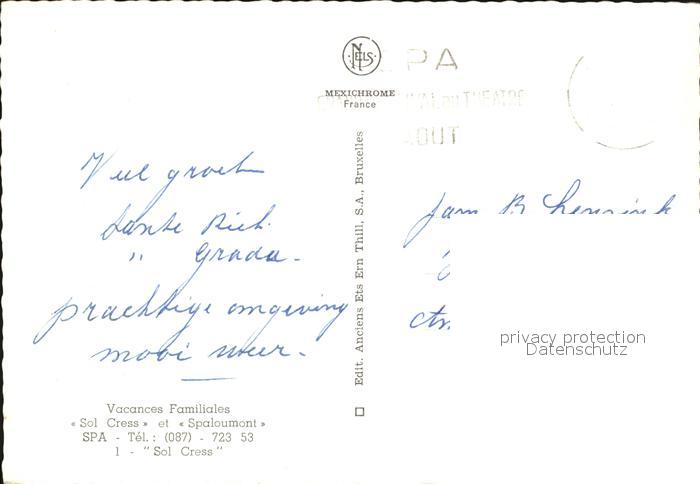 Veel groet
Tante Riet.
" Grada.
prachtige omgeving
mooi weer.
Vacances Familiales
« Sol Cress » et « Spaloumont »
SPA - Tél.: (087) - 723 53
1 - "Sol Cress"
NELS
MEXICHROME
France
Edit. Anciens Ets Ern Thill, S.A., Bruxelles
SPA
DU THEATRE
AOUT
Fam B
privacy protection
Datenschutz